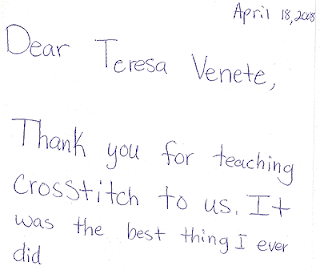 April 18, 2008
Dear Teresa Venete,
Thank you for teaching
CrosStitch to us. It
was the best thing I ever
did